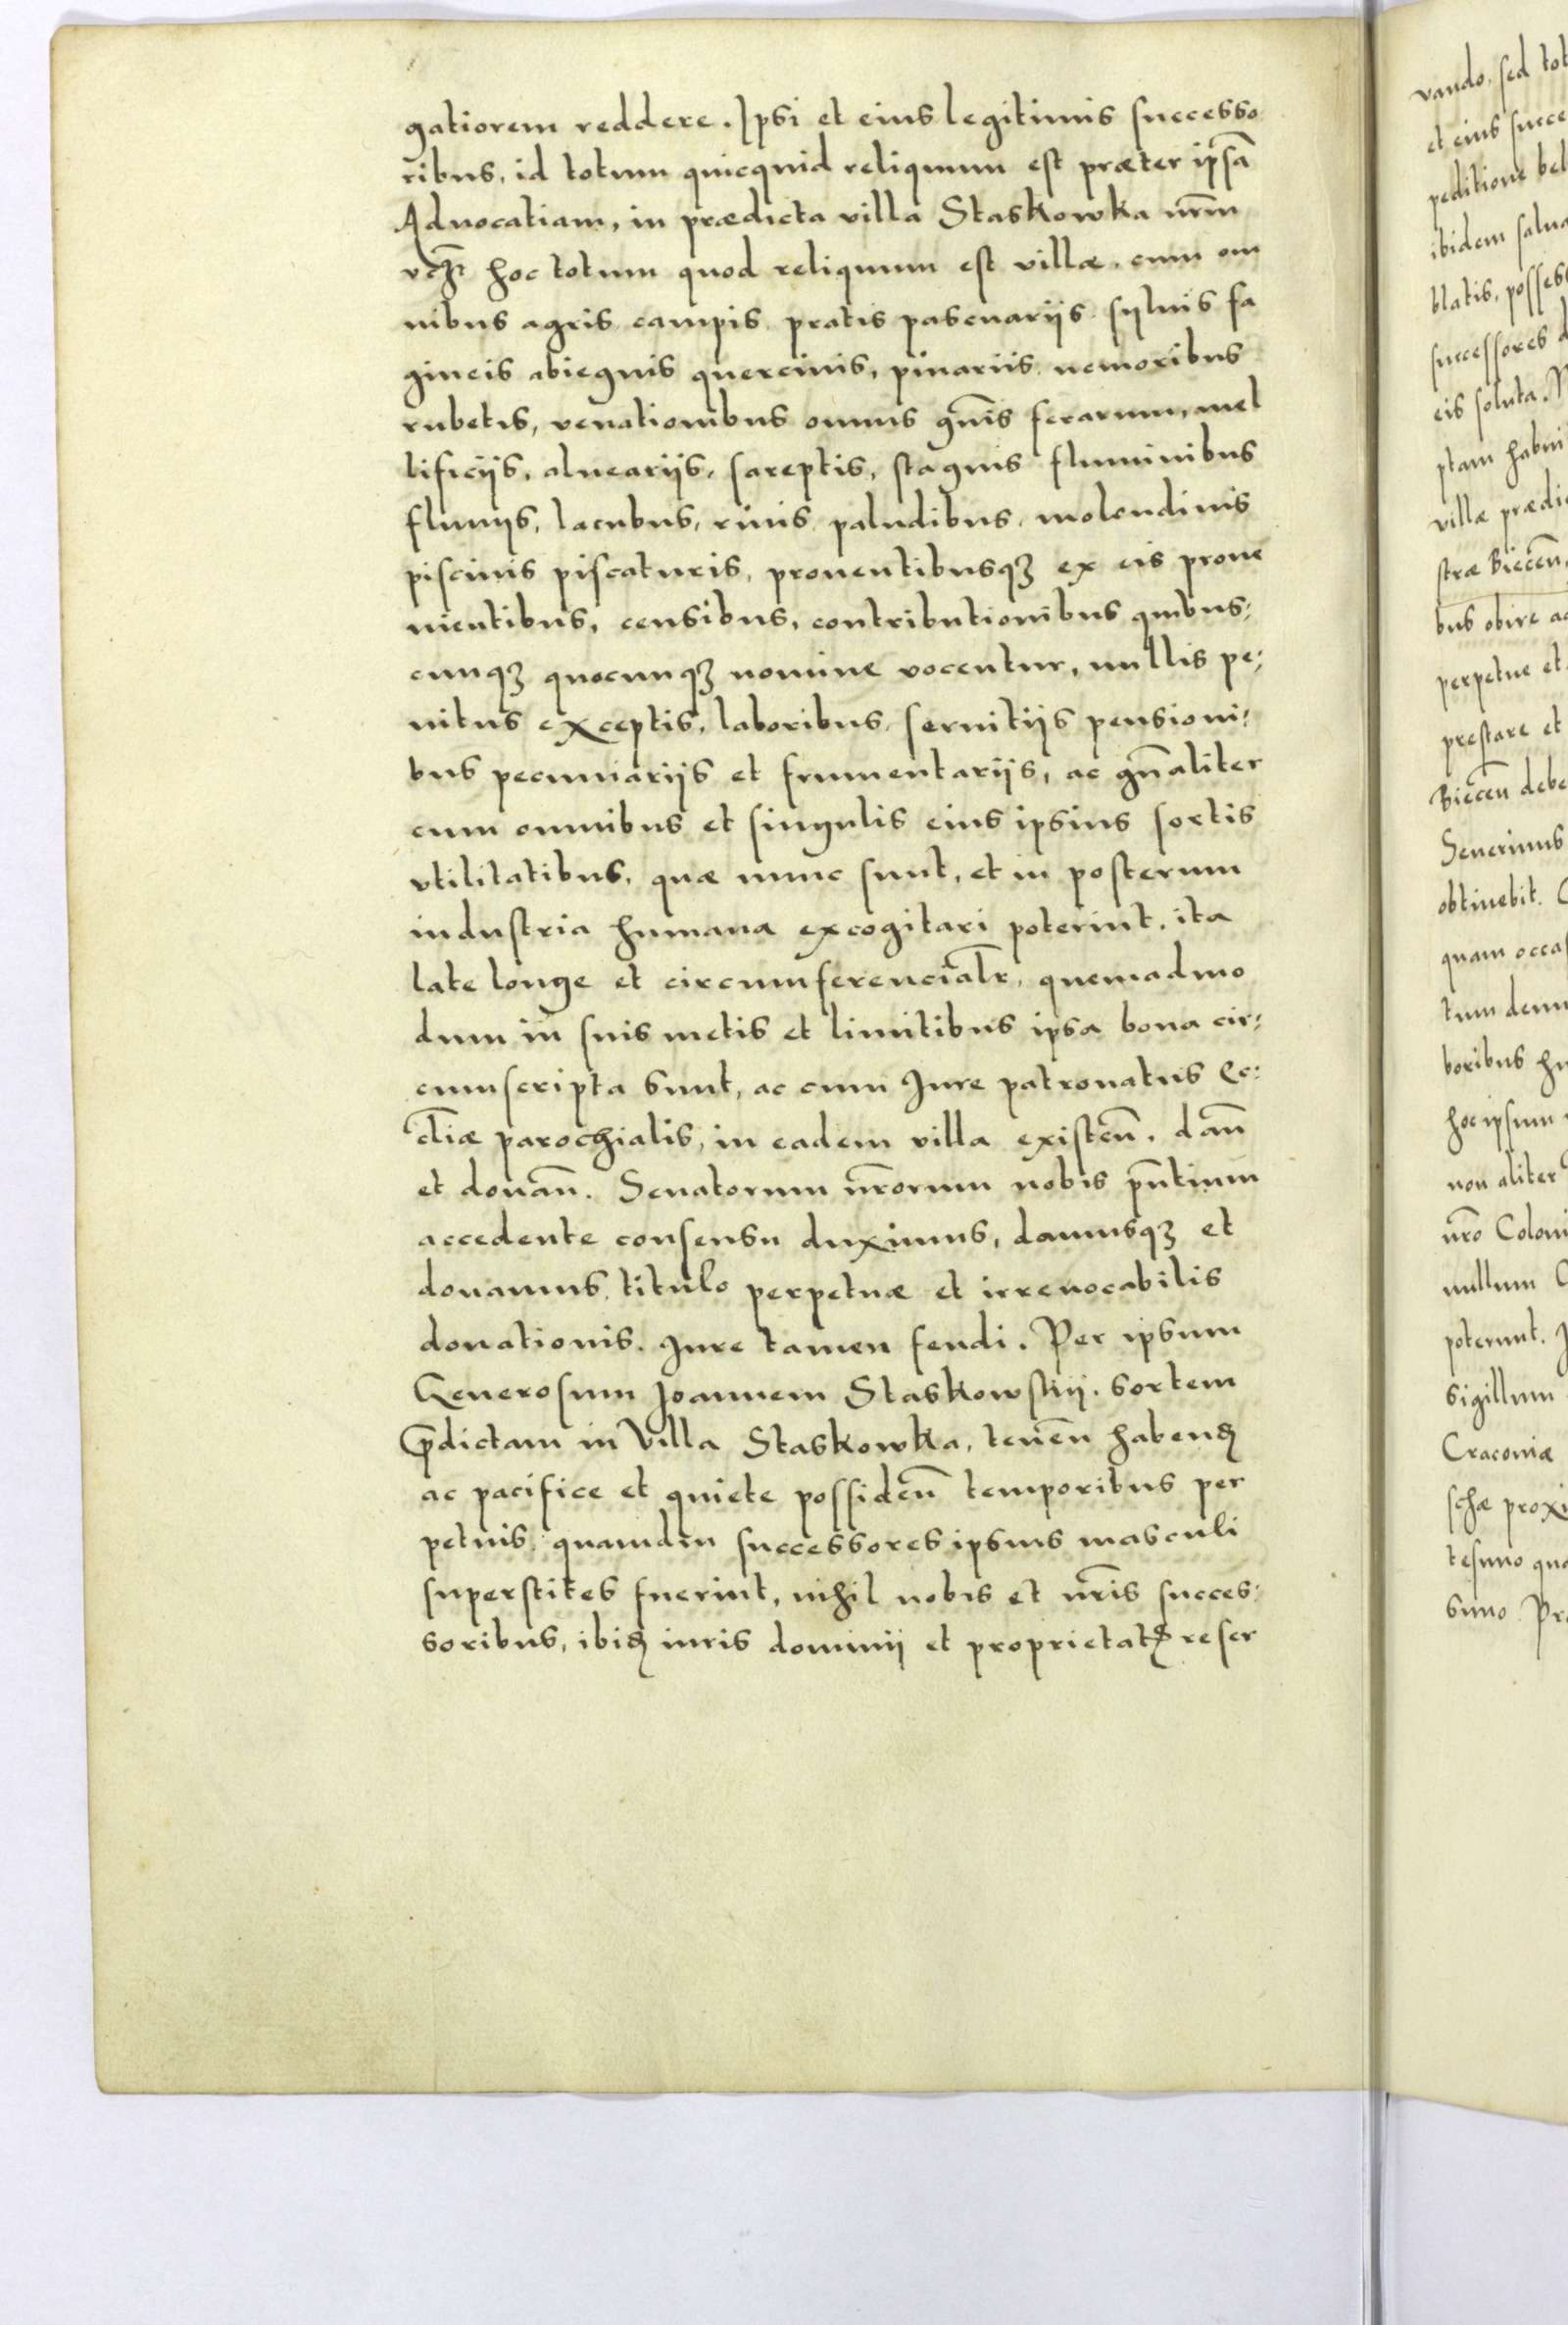 gatiorem reddere. Ipsi et eius legitimis successo
ribus, id totum quicquid reliquum est præter ipsā
Aduocatiam, in prædicta villa Staskowka nr̃m
hoc totum quod reliquum est villæ, cum om
nibus agris campis pratis pascuariis syluis fa
gineis abiegnis quercinis, pinariis nemoribus
rubetis, venationibus omnis gñis ferarum, mel
lificiis, alueariis, sareptis, stagnis fluminibus
fluuiis, lacubus, riuis paludibus, molendinis
piscinis piscaturis, prouentibusqꝫ ex eis proue
nientibus, censibus, contributionibus quibus:
cunqꝫ quocunqꝫ nomine vocentur, nullis pe:
nitus exceptis, laboribus, seruitiis pensioni:
bus pecuniariis et frumentariis, ac gñaliter
cum omnibus et singulis eius ipsius sortis
vtilitatibus, quæ nunc sunt, et in posterum
industria humana excogitari poterint, ita
late longe et circumferencialr̃, quemadmo
dum in suis metis et limitibus ipsa bona cir:
cumscripta sunt, ac cum Jure patronatus Ec:
cliæ parochialis, in eadem villa existeñ. dañ
et donañ. Senatorum nr̃orum nobis pñtium
accedente consensu duximus, damusqꝫ et
donamus, titulo perpetuæ et irreuocabilis
donationis. Jure tamen feudi. Per ipsum
Generosum Joannem Staskowskij. sortem
p̃dictam in Villa Staskowka, teneñ habenꝭ
ac pacifice et quiete possideñ temporibus per
petuis, quamdiu successores ipsius masculi
superstites fuerint, nihil nobis et nr̃is succes:
soribus, ibiꝭ iuris dominij et proprietatꝭ reser
vando, sed tot
et eius succe
peditione bel
ibidem salua
blatis, possess
successores d
eis soluta.
ptam habui
villæ prædic
stræ Bieceñ,
bus obire ac
perpetue et
prestare et
Bieceñ debe
Seuerinus
obtinebit.
quam occas
tum demu
boribus hu
hoc ipsum
non aliter
nr̃o Coloni
nullum
poterunt.
sigillum
Cracouiæ
schæ proxi
tesimo quo
simo. Pr